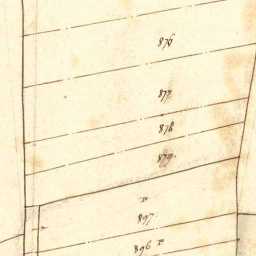 876
877
878
879
a
867
866 a